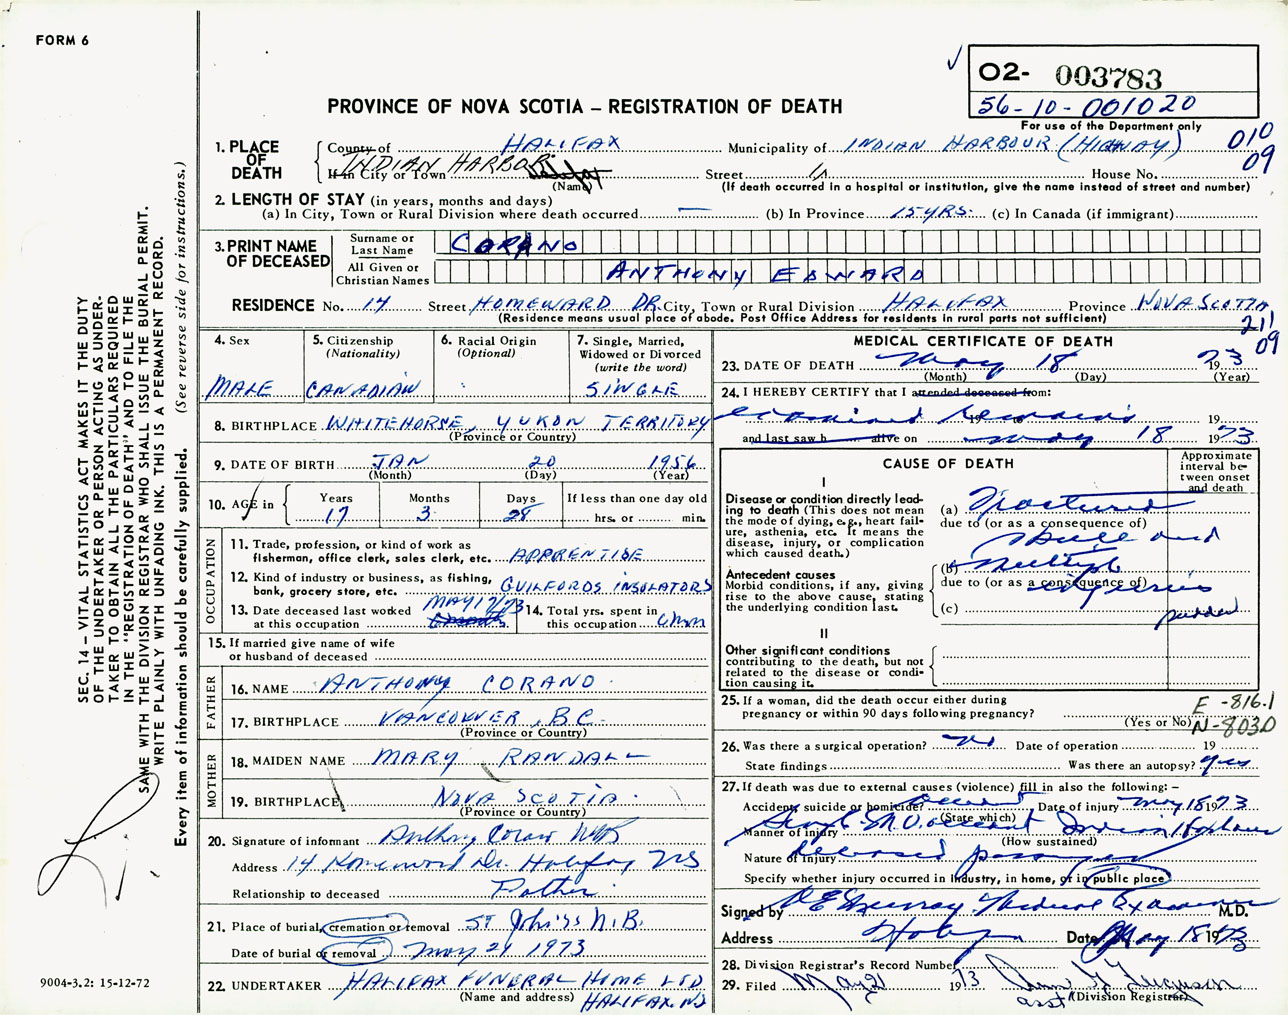 FORM 6
O2- 003783
56-10-001020
For use of the Department only
PROVINCE OF NOVA SCOTIA – REGISTRATION OF DEATH
010
09
1. PLACE OF DEATH
County of HALIFAX Municipality of INDIAN HARBOUR (HIGHWAY)
If in City or Town INDIAN HARBOR Street House No.
(Name) (If death occurred in a hospital or institution, give the name instead of street and number)
2. LENGTH OF STAY (in years, months and days)
(a) In City, Town or Rural Division where death occurred — (b) In Province 15 YRS. (c) In Canada (if immigrant)
3. PRINT NAME OF DECEASED
Surname or Last Name CORANO
All Given or Christian Names ANTHONY EDWARD
RESIDENCE No. 14 Street HOMEWARD DR. City, Town or Rural Division HALIFAX Province NOVA SCOTIA
(Residence means usual place of abode. Post Office Address for residents in rural parts not sufficient)
211
09
4. Sex MALE
5. Citizenship (Nationality) CANADIAN
6. Racial Origin (Optional)
7. Single, Married, Widowed or Divorced (write the word) SINGLE
8. BIRTHPLACE WHITEHORSE, YUKON TERRITORY
(Province or Country)
9. DATE OF BIRTH JAN 20 1956
(Month) (Day) (Year)
10. AGE in Years 17 Months 3 Days 28 If less than one day old
hrs. or min.
OCCUPATION
11. Trade, profession, or kind of work as
fisherman, office clerk, sales clerk, etc. APPRENTISE
12. Kind of industry or business, as fishing,
bank, grocery store, etc. GUILFORDS INSULATORS
13. Date deceased last worked
at this occupation MAY 17/73
14. Total yrs. spent in
this occupation 6 Mon
15. If married give name of wife
or husband of deceased
FATHER
16. NAME ANTHONY CORANO
17. BIRTHPLACE VANCOUVER, B.C.
(Province or Country)
MOTHER
18. MAIDEN NAME MARY RANDALL
19. BIRTHPLACE NOVA SCOTIA
(Province or Country)
20. Signature of informant Anthony Corano
Address 14 Homeward Dr. Halifax NS
Relationship to deceased Father
21. Place of burial, cremation or removal ST John's N.B.
Date of burial or removal May 21 1973
22. UNDERTAKER HALIFAX FUNERAL HOME LTD
(Name and address) HALIFAX. NS
MEDICAL CERTIFICATE OF DEATH
23. DATE OF DEATH May 18 1973
(Month) (Day) (Year)
24. I HEREBY CERTIFY that I attended deceased from:
examined remains 19 to 19
and last saw h alive on May 18 1973
CAUSE OF DEATH
Approximate interval between onset and death
I
Disease or condition directly leading to death (This does not mean the mode of dying, e.g., heart failure, asthenia, etc. It means the disease, injury, or complication which caused death.)
(a) Fractured
due to (or as a consequence of)
Skull and
Antecedent causes
Morbid conditions, if any, giving rise to the above cause, stating the underlying condition last.
(b) Multiple
due to (or as a consequence of)
injuries
(c)
sudden
II
Other significant conditions
contributing to the death, but not related to the disease or condition causing it.
25. If a woman, did the death occur either during
pregnancy or within 90 days following pregnancy?
(Yes or No)
E-816.1
N-803D
26. Was there a surgical operation? No Date of operation 19
State findings Was there an autopsy? yes
27. If death was due to external causes (violence) fill in also the following: –
Accident, suicide or homicide? accident Date of injury May 18 1973
(State which)
Manner of injury Single M.V. accident Indian Harbour
(How sustained)
Nature of Injury deceased passenger
Specify whether injury occurred in industry, in home, or in public place
Signed by Murray Medical Examiner M.D.
Address Halifax Date May 18 1973
28. Division Registrar's Record Number
29. Filed May 21 1973 Ferguson
asst (Division Registrar)
SEC. 14 – VITAL STATISTICS ACT MAKES IT THE DUTY
OF THE UNDERTAKER OR PERSON ACTING AS UNDER-
TAKER TO OBTAIN ALL THE PARTICULARS REQUIRED
IN THE "REGISTRATION OF DEATH" AND TO FILE THE
SAME WITH THE DIVISION REGISTRAR WHO SHALL ISSUE THE BURIAL PERMIT.
WRITE PLAINLY WITH UNFADING INK. THIS IS A PERMANENT RECORD.
Every item of information should be carefully supplied. (See reverse side for instructions.)
9004-3.2: 15-12-72